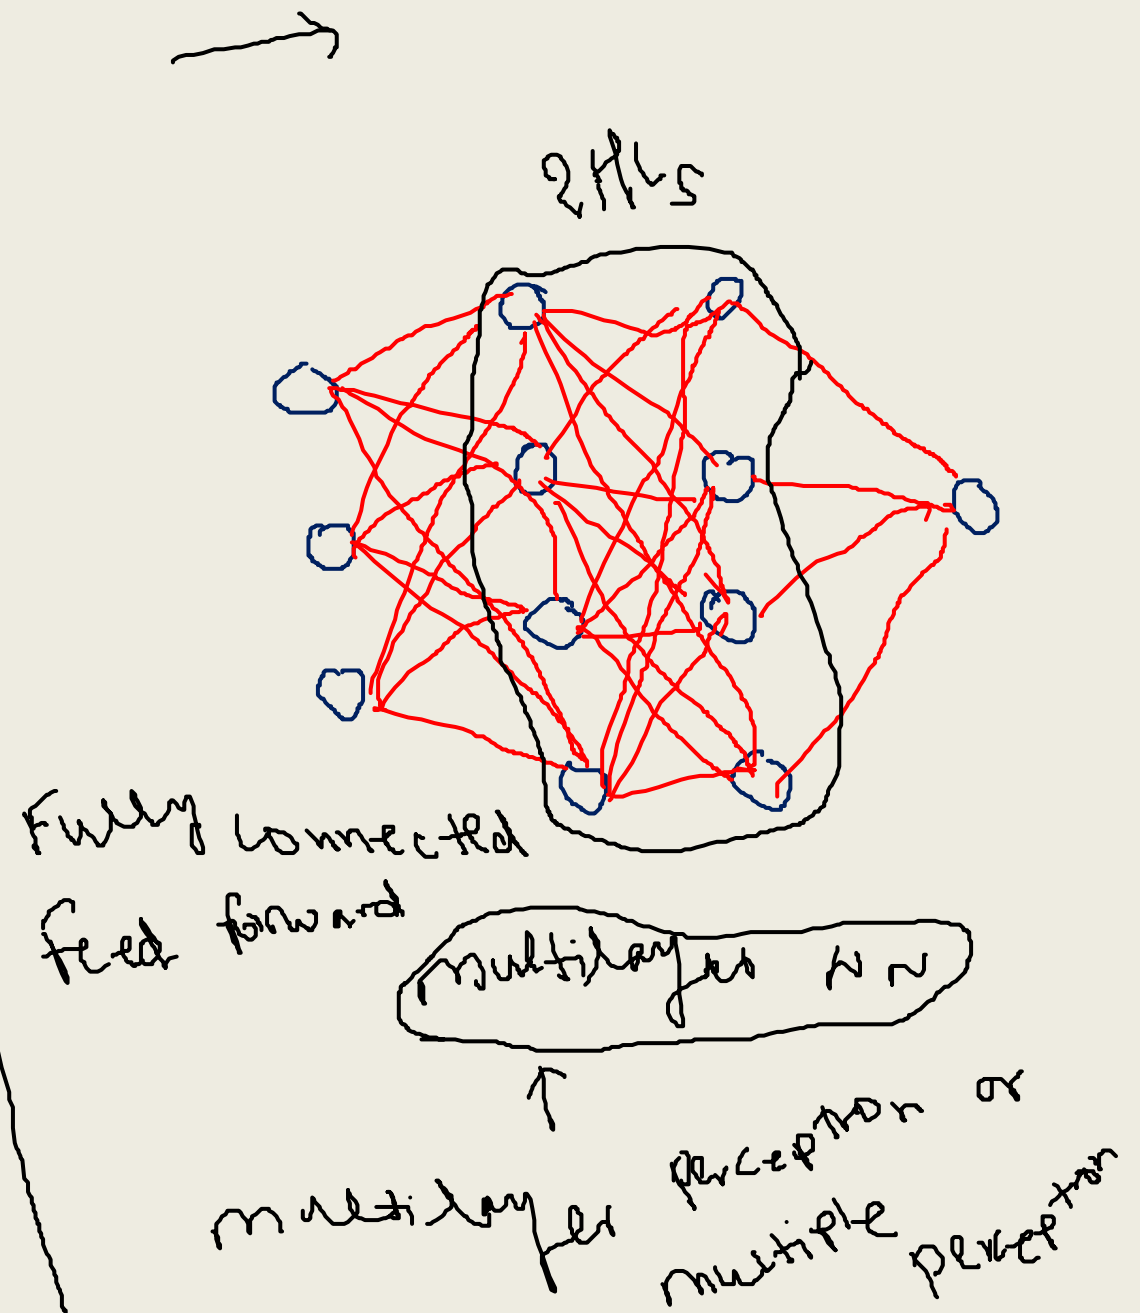 2HLs
Fully connected
feed forward
multilayer NN
multilayer perceptron or
multiple perceptron